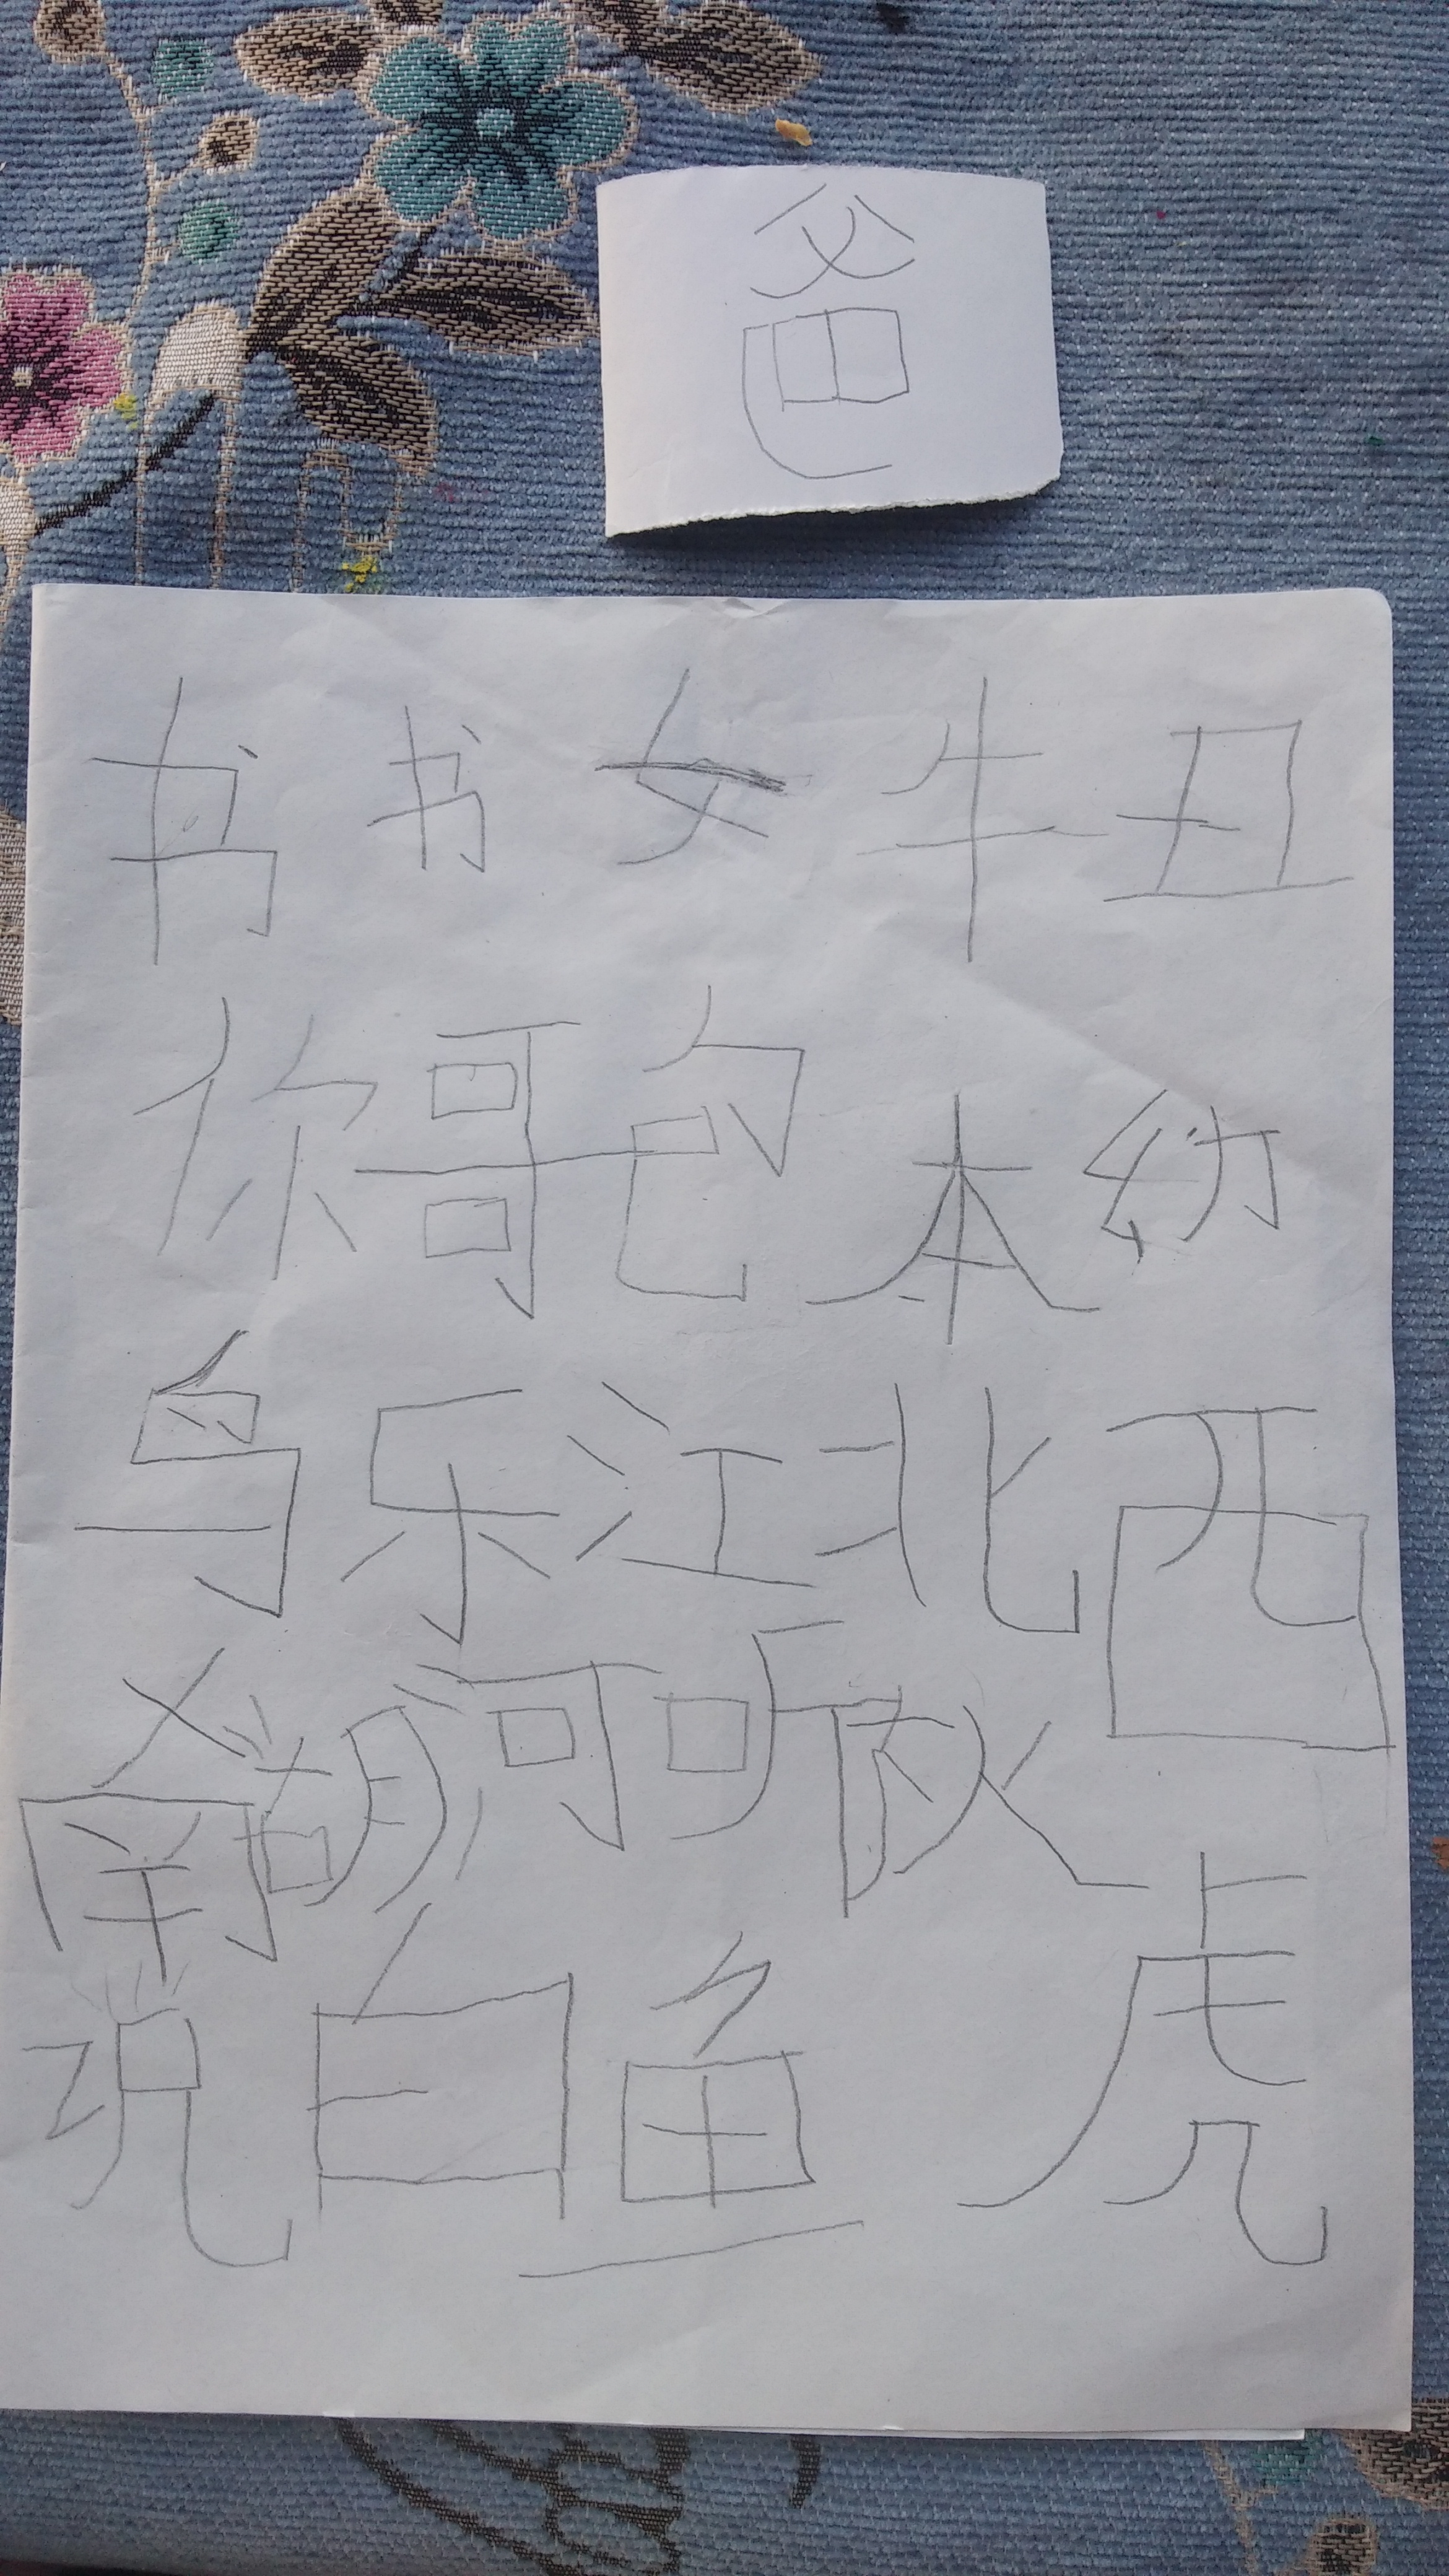 爸
书书女牛丑
你哥包本幼
鸟乐江北西
南湖河听放
说白鱼虎